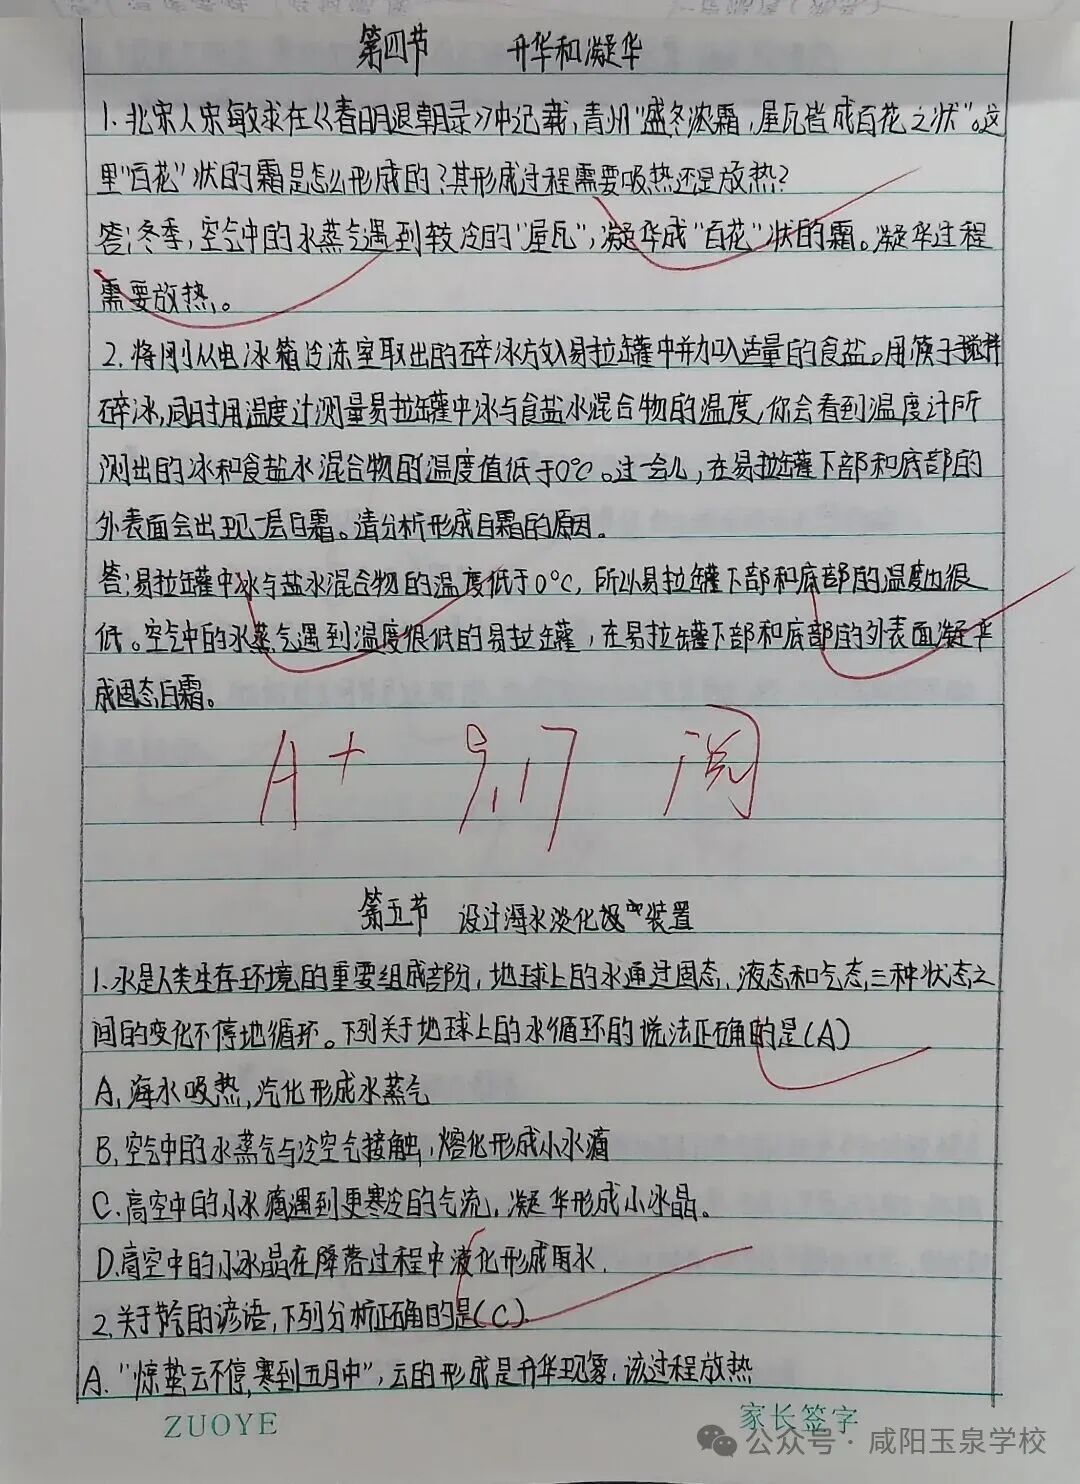 第四节 升华和凝华
1. 北宋人宋敏求在《春明退朝录》中记载,青州“盛冬浓霜,屋瓦皆成百花之状”。这
里“百花”状的霜是怎么形成的?其形成过程需要吸热还是放热?
答:冬季,空气中的水蒸气遇到较冷的“屋瓦”,凝华成“百花”状的霜。凝华过程
需要放热。
2. 将刚从电冰箱冷冻室取出的碎冰放入易拉罐中并加入适量的食盐。用筷子搅拌
碎冰,同时用温度计测量易拉罐中冰与食盐水混合物的温度,你会看到温度计所
测出的冰和食盐水混合物的温度值低于0℃。过一会儿,在易拉罐下部和底部的
外表面会出现一层白霜。请分析形成白霜的原因。
答:易拉罐中冰与盐水混合物的温度低于0℃,所以易拉罐下部和底部的温度也很
低。空气中的水蒸气遇到温度很低的易拉罐,在易拉罐下部和底部的外表面凝华
成固态白霜。
A+ 9.17 阅
第五节 设计海水淡化装置
1.水是人类生存环境的重要组成部份,地球上的水通过固态、液态和气态三种状态之
间的变化不停地循环。下列关于地球上的水循环的说法正确的是(A)
A.海水吸热,汽化形成水蒸气
B.空气中的水蒸气与冷空气接触,熔化形成小水滴
C.高空中的小水滴遇到更寒冷的气流,凝华形成小冰晶。
D.高空中的小冰晶在降落过程中液化形成雨水.
2.关于的谚语,下列分析正确的是(C).
A.“惊蛰云不停,寒到五月中”,云的形成是升华现象,该过程放热
ZUOYE 家长签字
公众号·咸阳玉泉学校